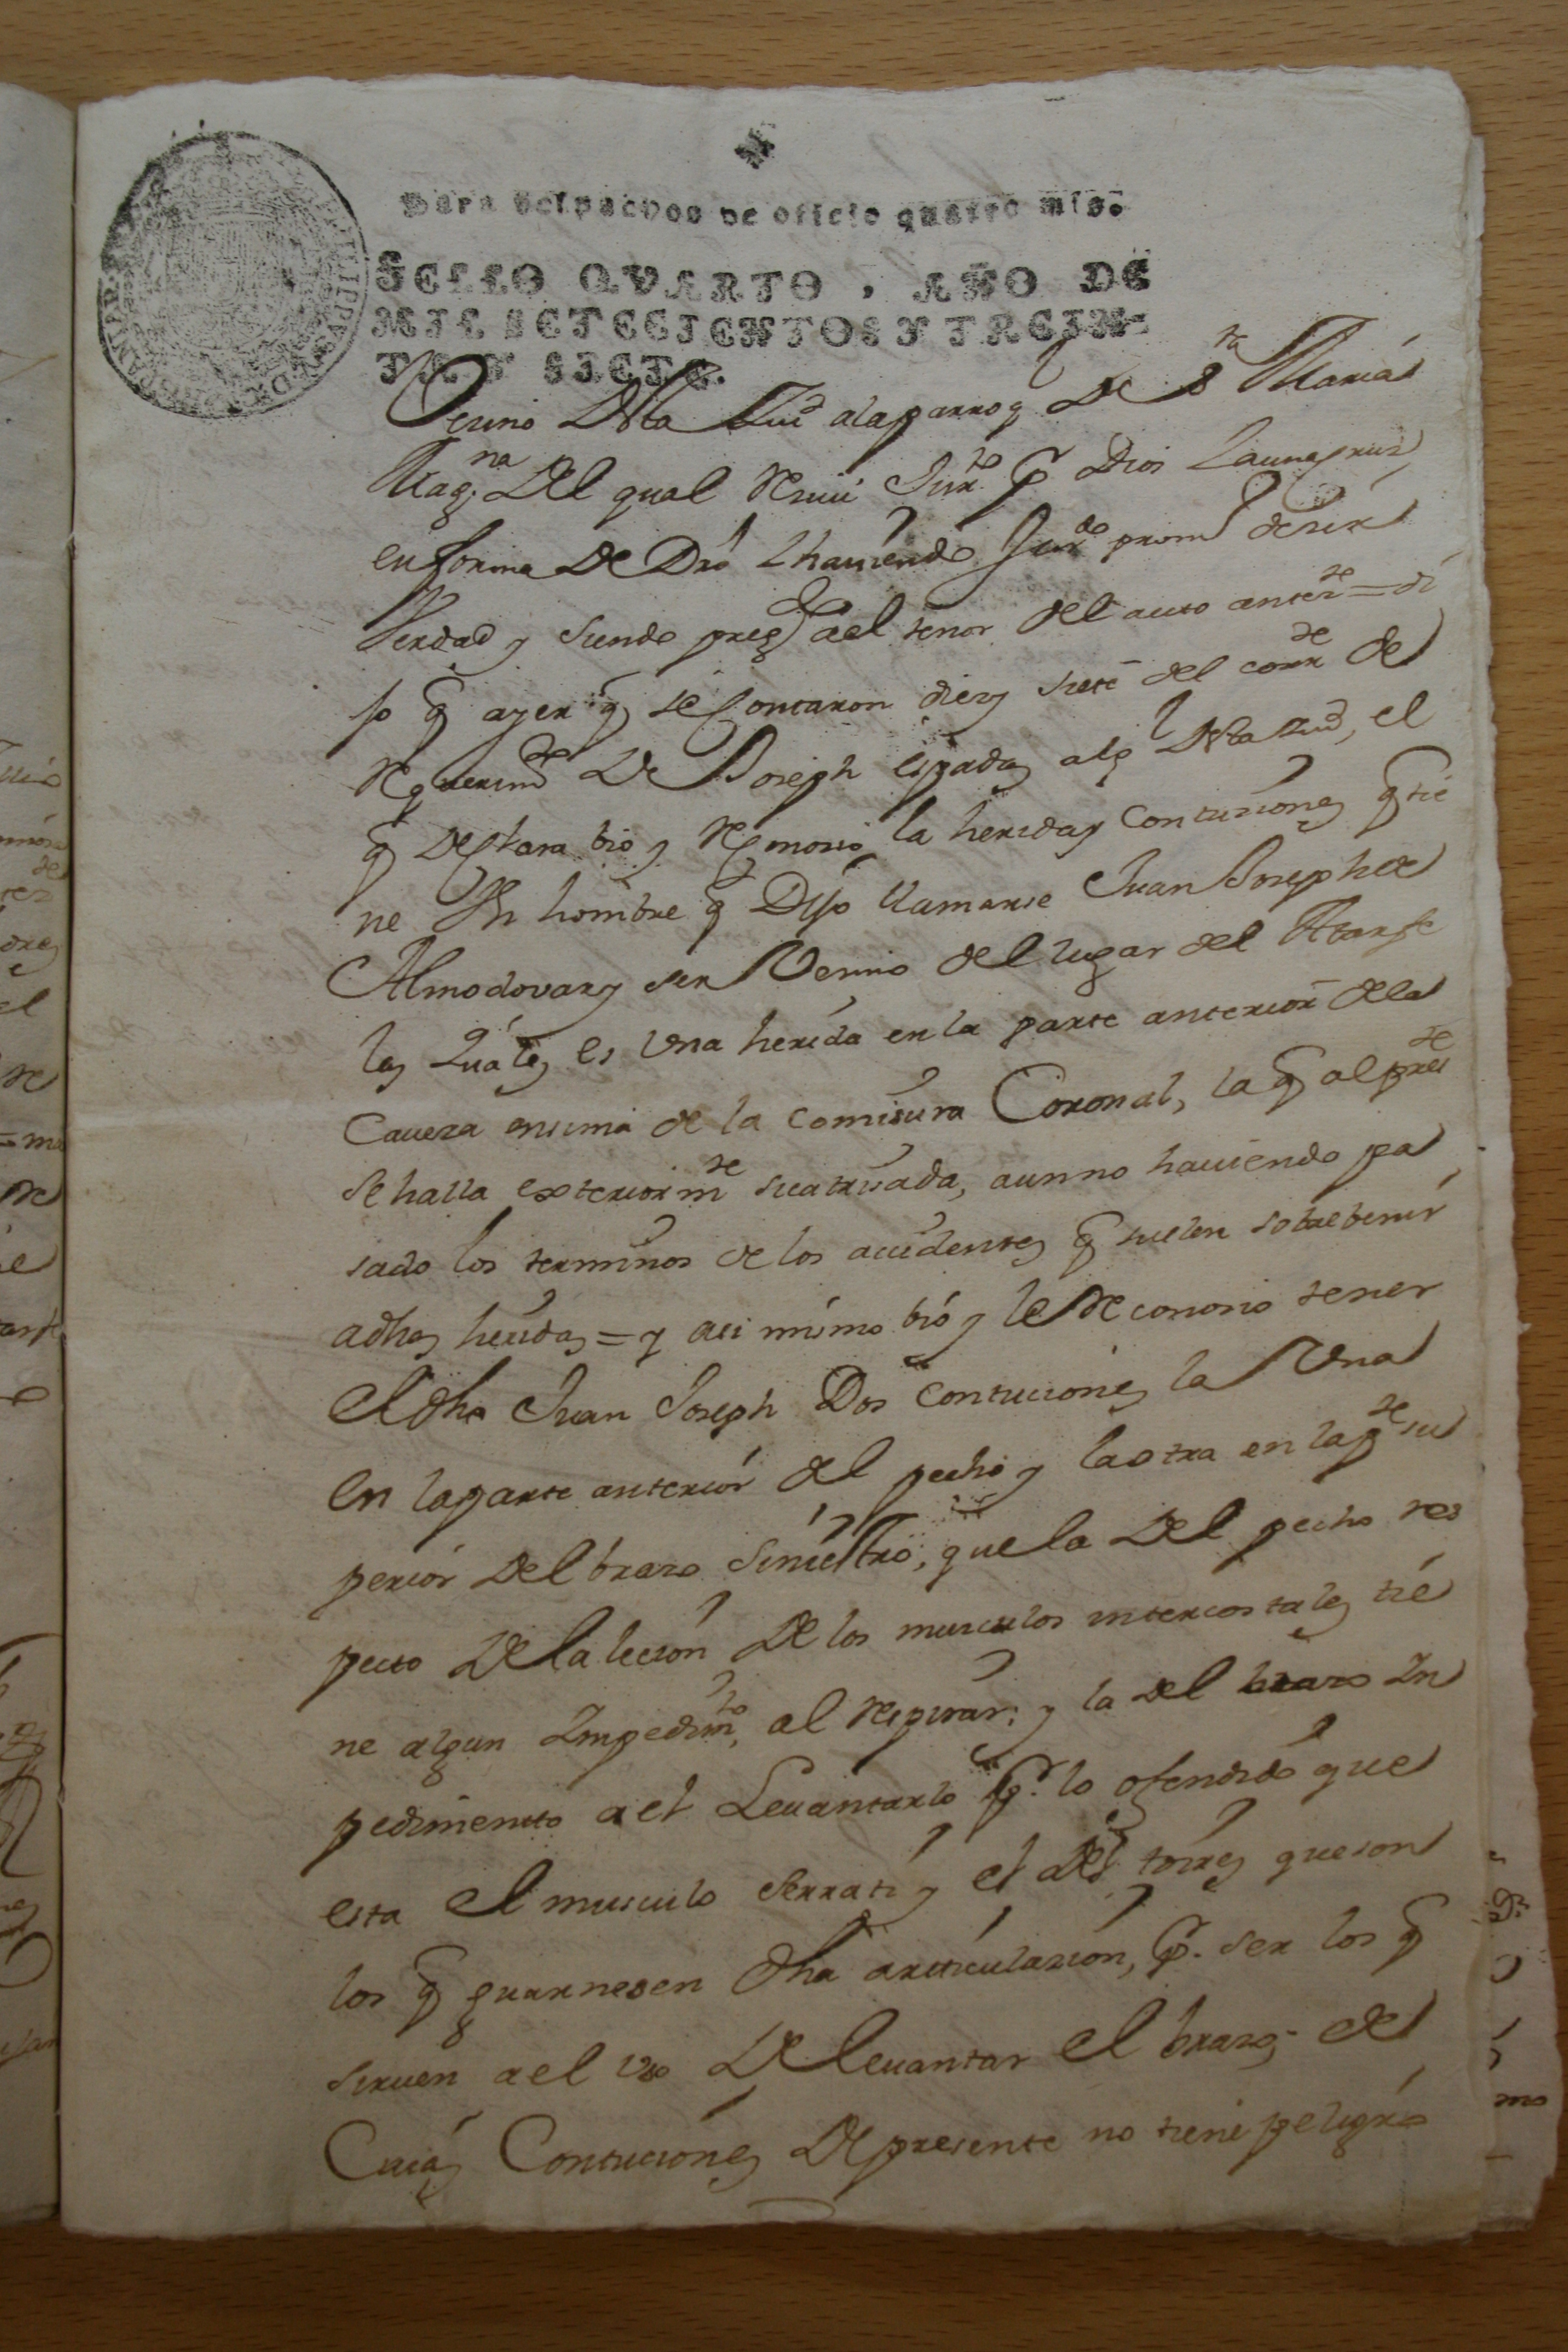 Para despachos de oficio quatro mrs.
SELLO QVARTO, AÑO DE
MIL SETECIENTOS Y TREIN-
TA Y SIETE.
Vecino Desta Ziud ala parroq De Sta Maria
Mag.na Del qual Reciui Jurto p Dios Y aunq cruz
en forma De Dro Y hauiendo Jurdo prom desir
Verdad y siendo pregdo ael tenor del auto anterte = di
jo q ayer q se Contaron diez y siete del corrte de
Requerimto De Joseph espadas alg Desta Ciud, el
q Declara bio y Reconosio la herida y Contuziones q tie
ne Un hombre q Dijo llamarse Juan Joseph de
Almodovar y ser Vecino del lugar del Atarfe
las quales es Una herida en la parte anterior dela
Caueza ensima de la Comisura Coronal, la q al preste
se halla exteriormte sicatrisada, aun no hauiendo pa
sado los terminos de los accidentes q suelen sobrebenir
adhas heridas = y asi mismo bió y le Reconosio tener
El dho Juan Joseph Dos Contuciones la Una
en la parte anteriór del pecho y la otra en la pte su
periór Del brazo Siniestro, que la Del pecho res
pecto De la leción De los musculos intercostales tie
ne algun Impedimto, al Respirar; y la del brazo Im
pedimento a el Leuantarlo pr. lo ofendido que
esta el musculo serrato y el Deltoires que son
los q guarnesen dha articulazion, pr. ser los q
siruen a el uso De leuantar el brazo; de
Cuias Contuciónes De presente no tiene peligro